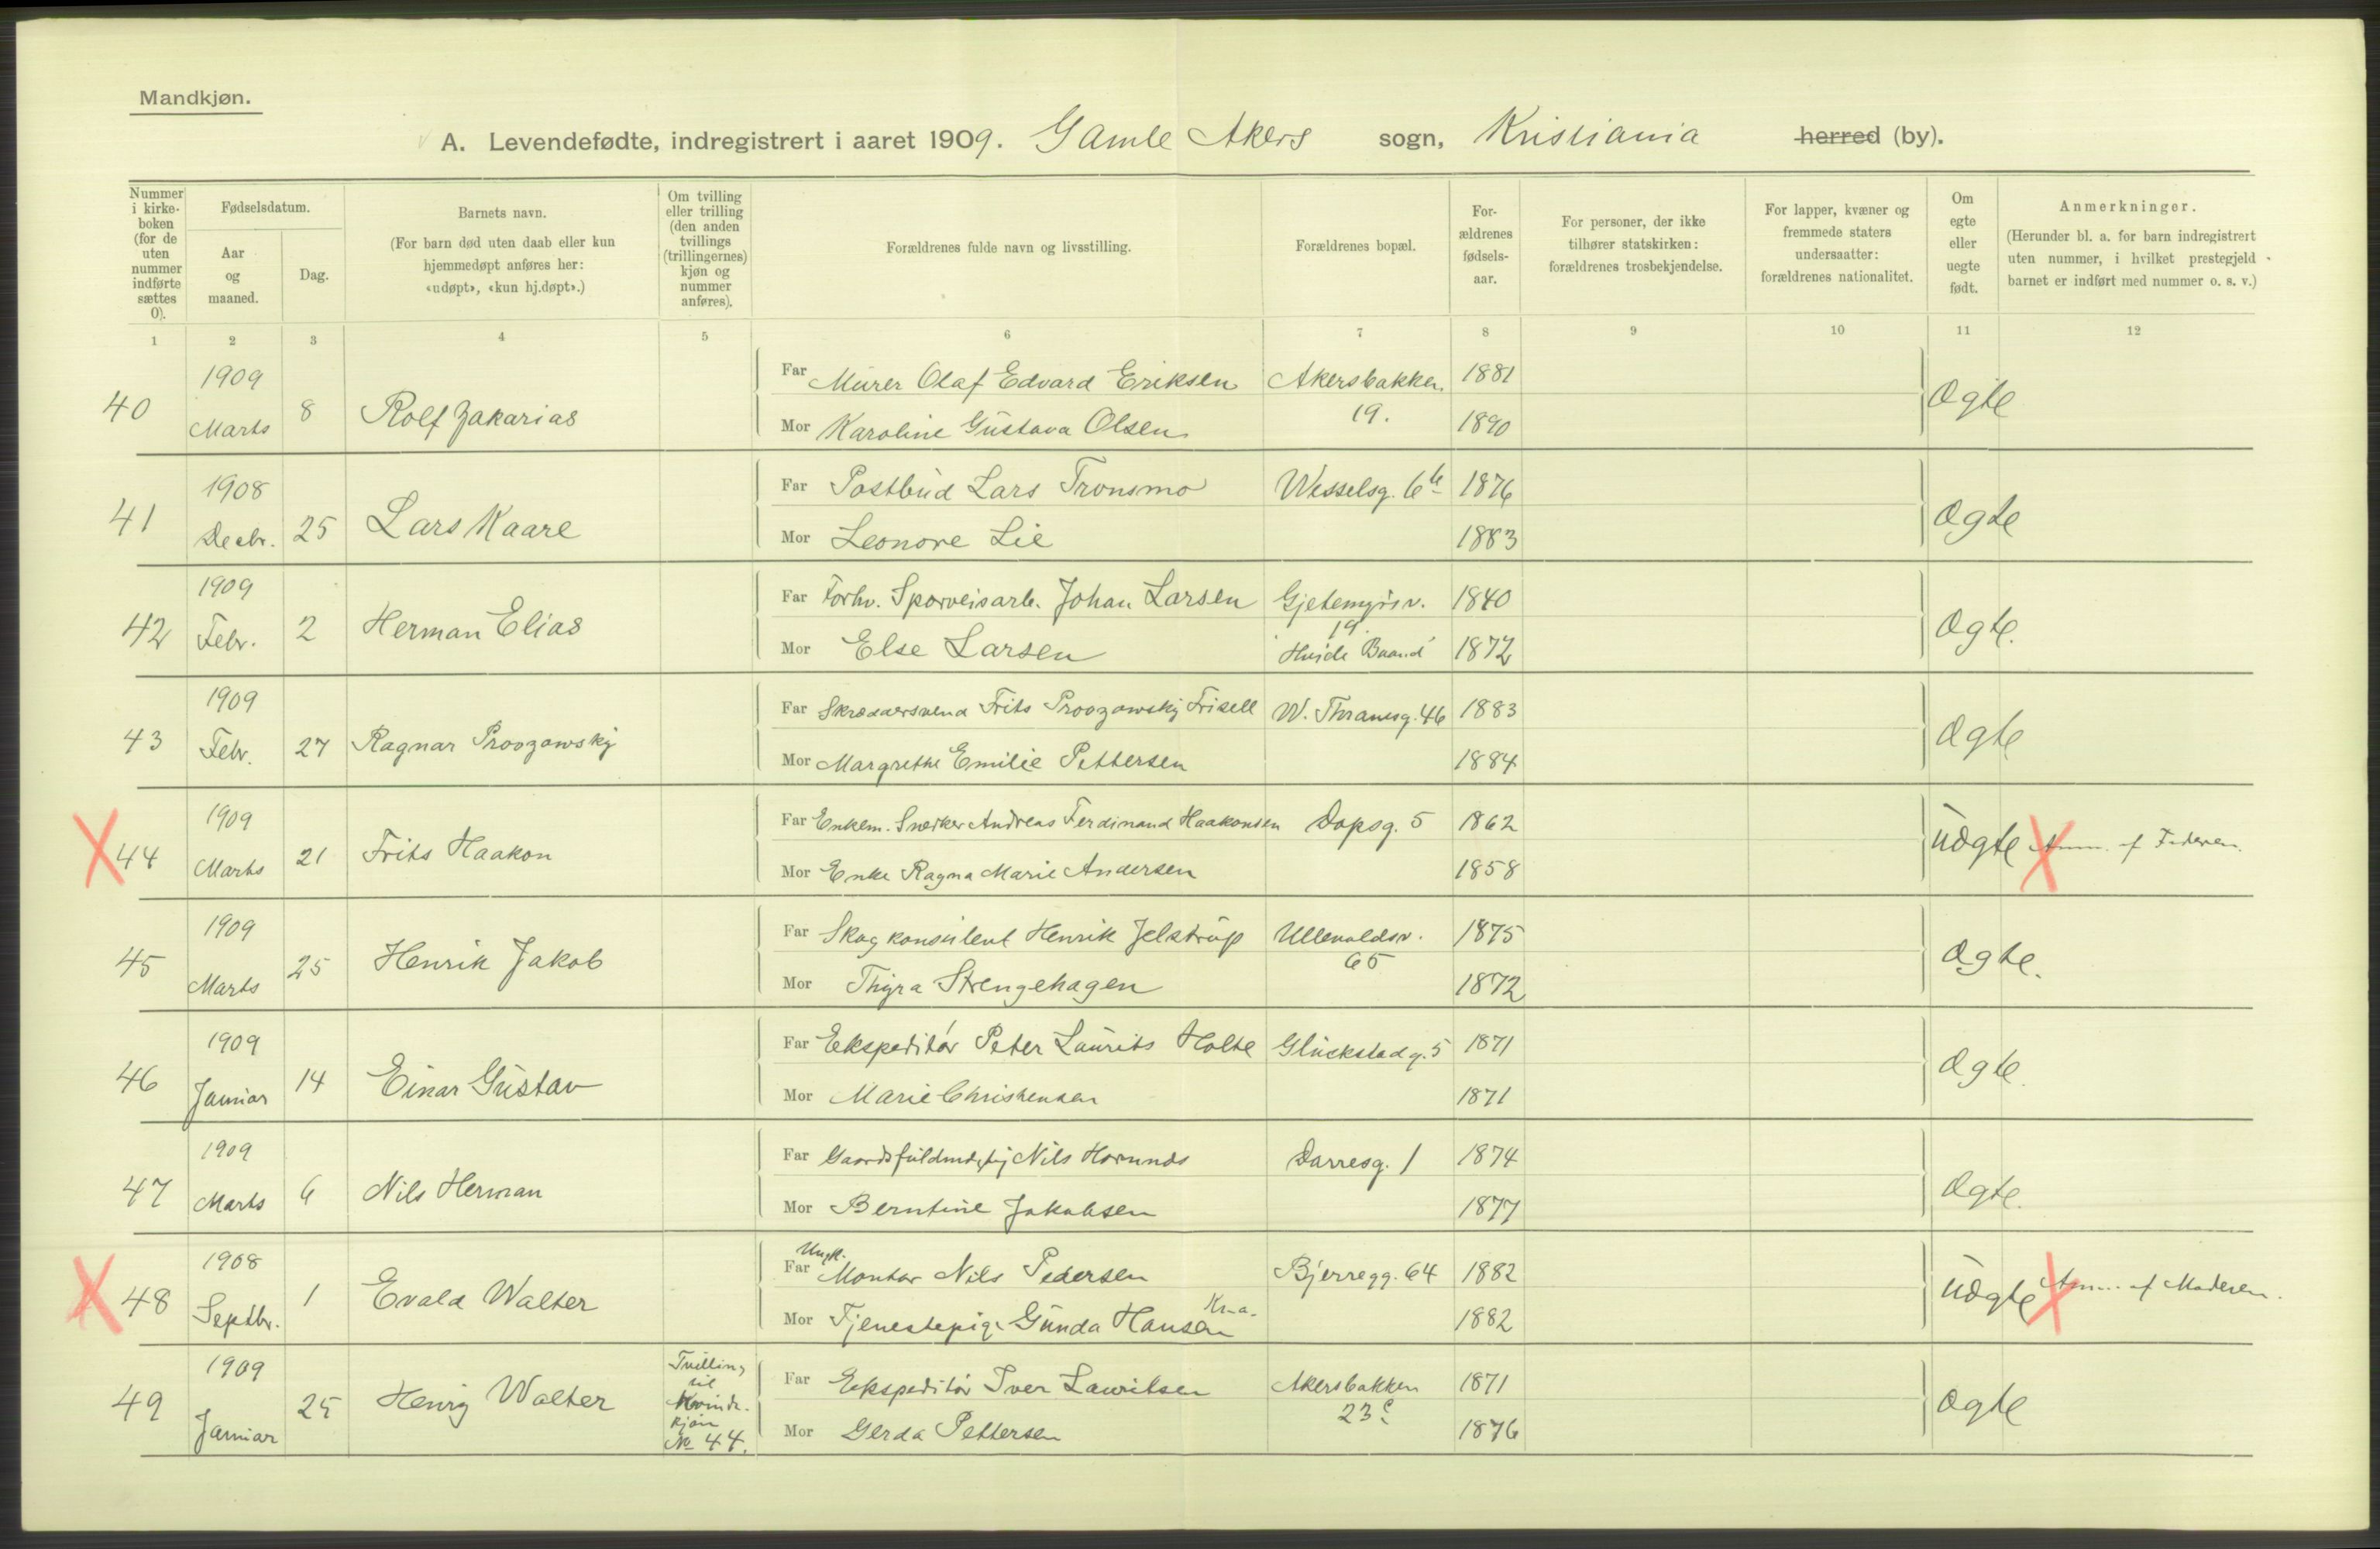 Mandkjøn.
A. Levendefødte, indregistrert i aaret 1909. Gamle Akers sogn, Kristiania herred (by).
Nummer i kirke-boken (for de uten nummer indførte sættes 0).
Fødselsdatum.
Aar og maaned.
Dag.
Barnets navn.
(For barn død uten daab eller kun hjemmedøpt anføres her: «udøpt», «kun hj.døpt».)
Om tvilling eller trilling (den anden tvillings (trillingernes) kjøn og nummer anføres).
Forældrenes fulde navn og livsstilling.
Forældrenes bopæl.
For-ældrenes fødsels-aar.
For personer, der ikke tilhører statskirken: forældrenes trosbekjendelse.
For lapper, kvæner og fremmede staters undersaatter: forældrenes nationalitet.
Om egte eller uegte født.
Anmerkninger.
(Herunder bl. a. for barn indregistrert uten nummer, i hvilket prestegjeld barnet er indført med nummer o. s. v.)
1 2 3 4 5 6 7 8 9 10 11 12
1909 Far Murer Olaf Edvard Eriksen Akersbakken 1881
40 Marts 8 Rolf Zakarias 19. Ægte
Mor Karoline Gustava Olsen 1890
1908 Far Postbud Lars Tronsmo Wesselsg. 6b 1876
41 Decbr. 25 Lars Kaare Ægte
Mor Leonore Lie 1883
1909 Far Forhv. Sporveisarb. Johan Larsen Gjetemyrsv. 1840
42 Febr. 2 Herman Elias 19. Ægte.
Mor Else Larsen 1872
1909 Far Skrædersvend Frits Proozowsky Frisell W. Thranesg. 46 1883
43 Febr. 27 Ragnar Proozowsky Ægte
Mor Margrethe Emilie Pettersen 1884
1909 Far Enkem. Snedker Andreas Ferdinand Haakonsen Dopsg. 5 1862
X 44 Marts 21 Frits Haakon Uægte X Anm. af Faderen.
Mor Enke Ragna Marie Andersen 1858
1909 Far Skogkonsulent Henrik Jelstrup Ullevoldsv. 1875
45 Marts 25 Henrik Jakob 65 Ægte.
Mor Thyra Strengehagen 1872
1909 Far Ekspeditør Peter Laurits Holte Glückstadg. 5 1871
46 Januar 14 Einar Gustav Ægte.
Mor Marie Christensen 1871
1909 Far Nils Darresg. 1 1874
47 Marts 6 Nils Herman Ægte.
Mor Berntine Jakobsen 1877
Ungk.
1908 Far Montør Nils Pedersen Bjerregg. 64 1882
X 48 Septbr. 1 Evald Walter Uægte X Anm. af Moderen.
Mor Tjenestepige Gunda Hansen Kr.a. 1882
1909 Tvilling Far Ekspeditør Iver Lauritsen Akersbakken 1871
til
49 Januar 25 Henry Walter Kvinde- 23c Ægte
kjøn
№ 44. Mor Gerda Pettersen 1876